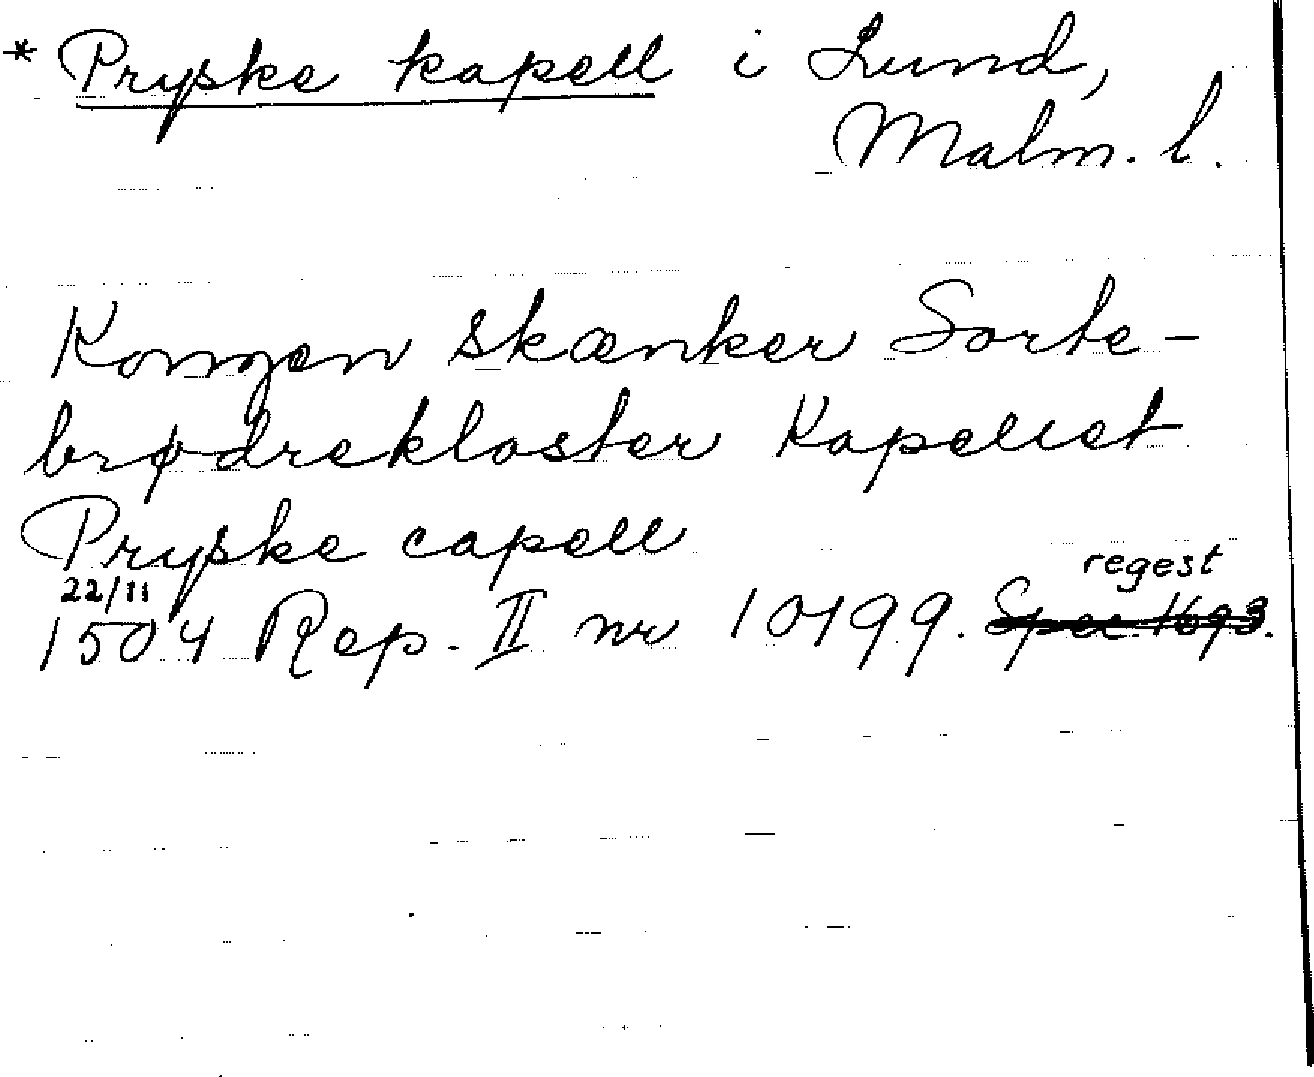 * Pryske kapell i Lund,
Malm. l.
Kongen skænker Sorte-
brødrekloster Kapellet
Pryske capell
22/11 regest
1504 Rep. II nr 10199. Spec 1693.